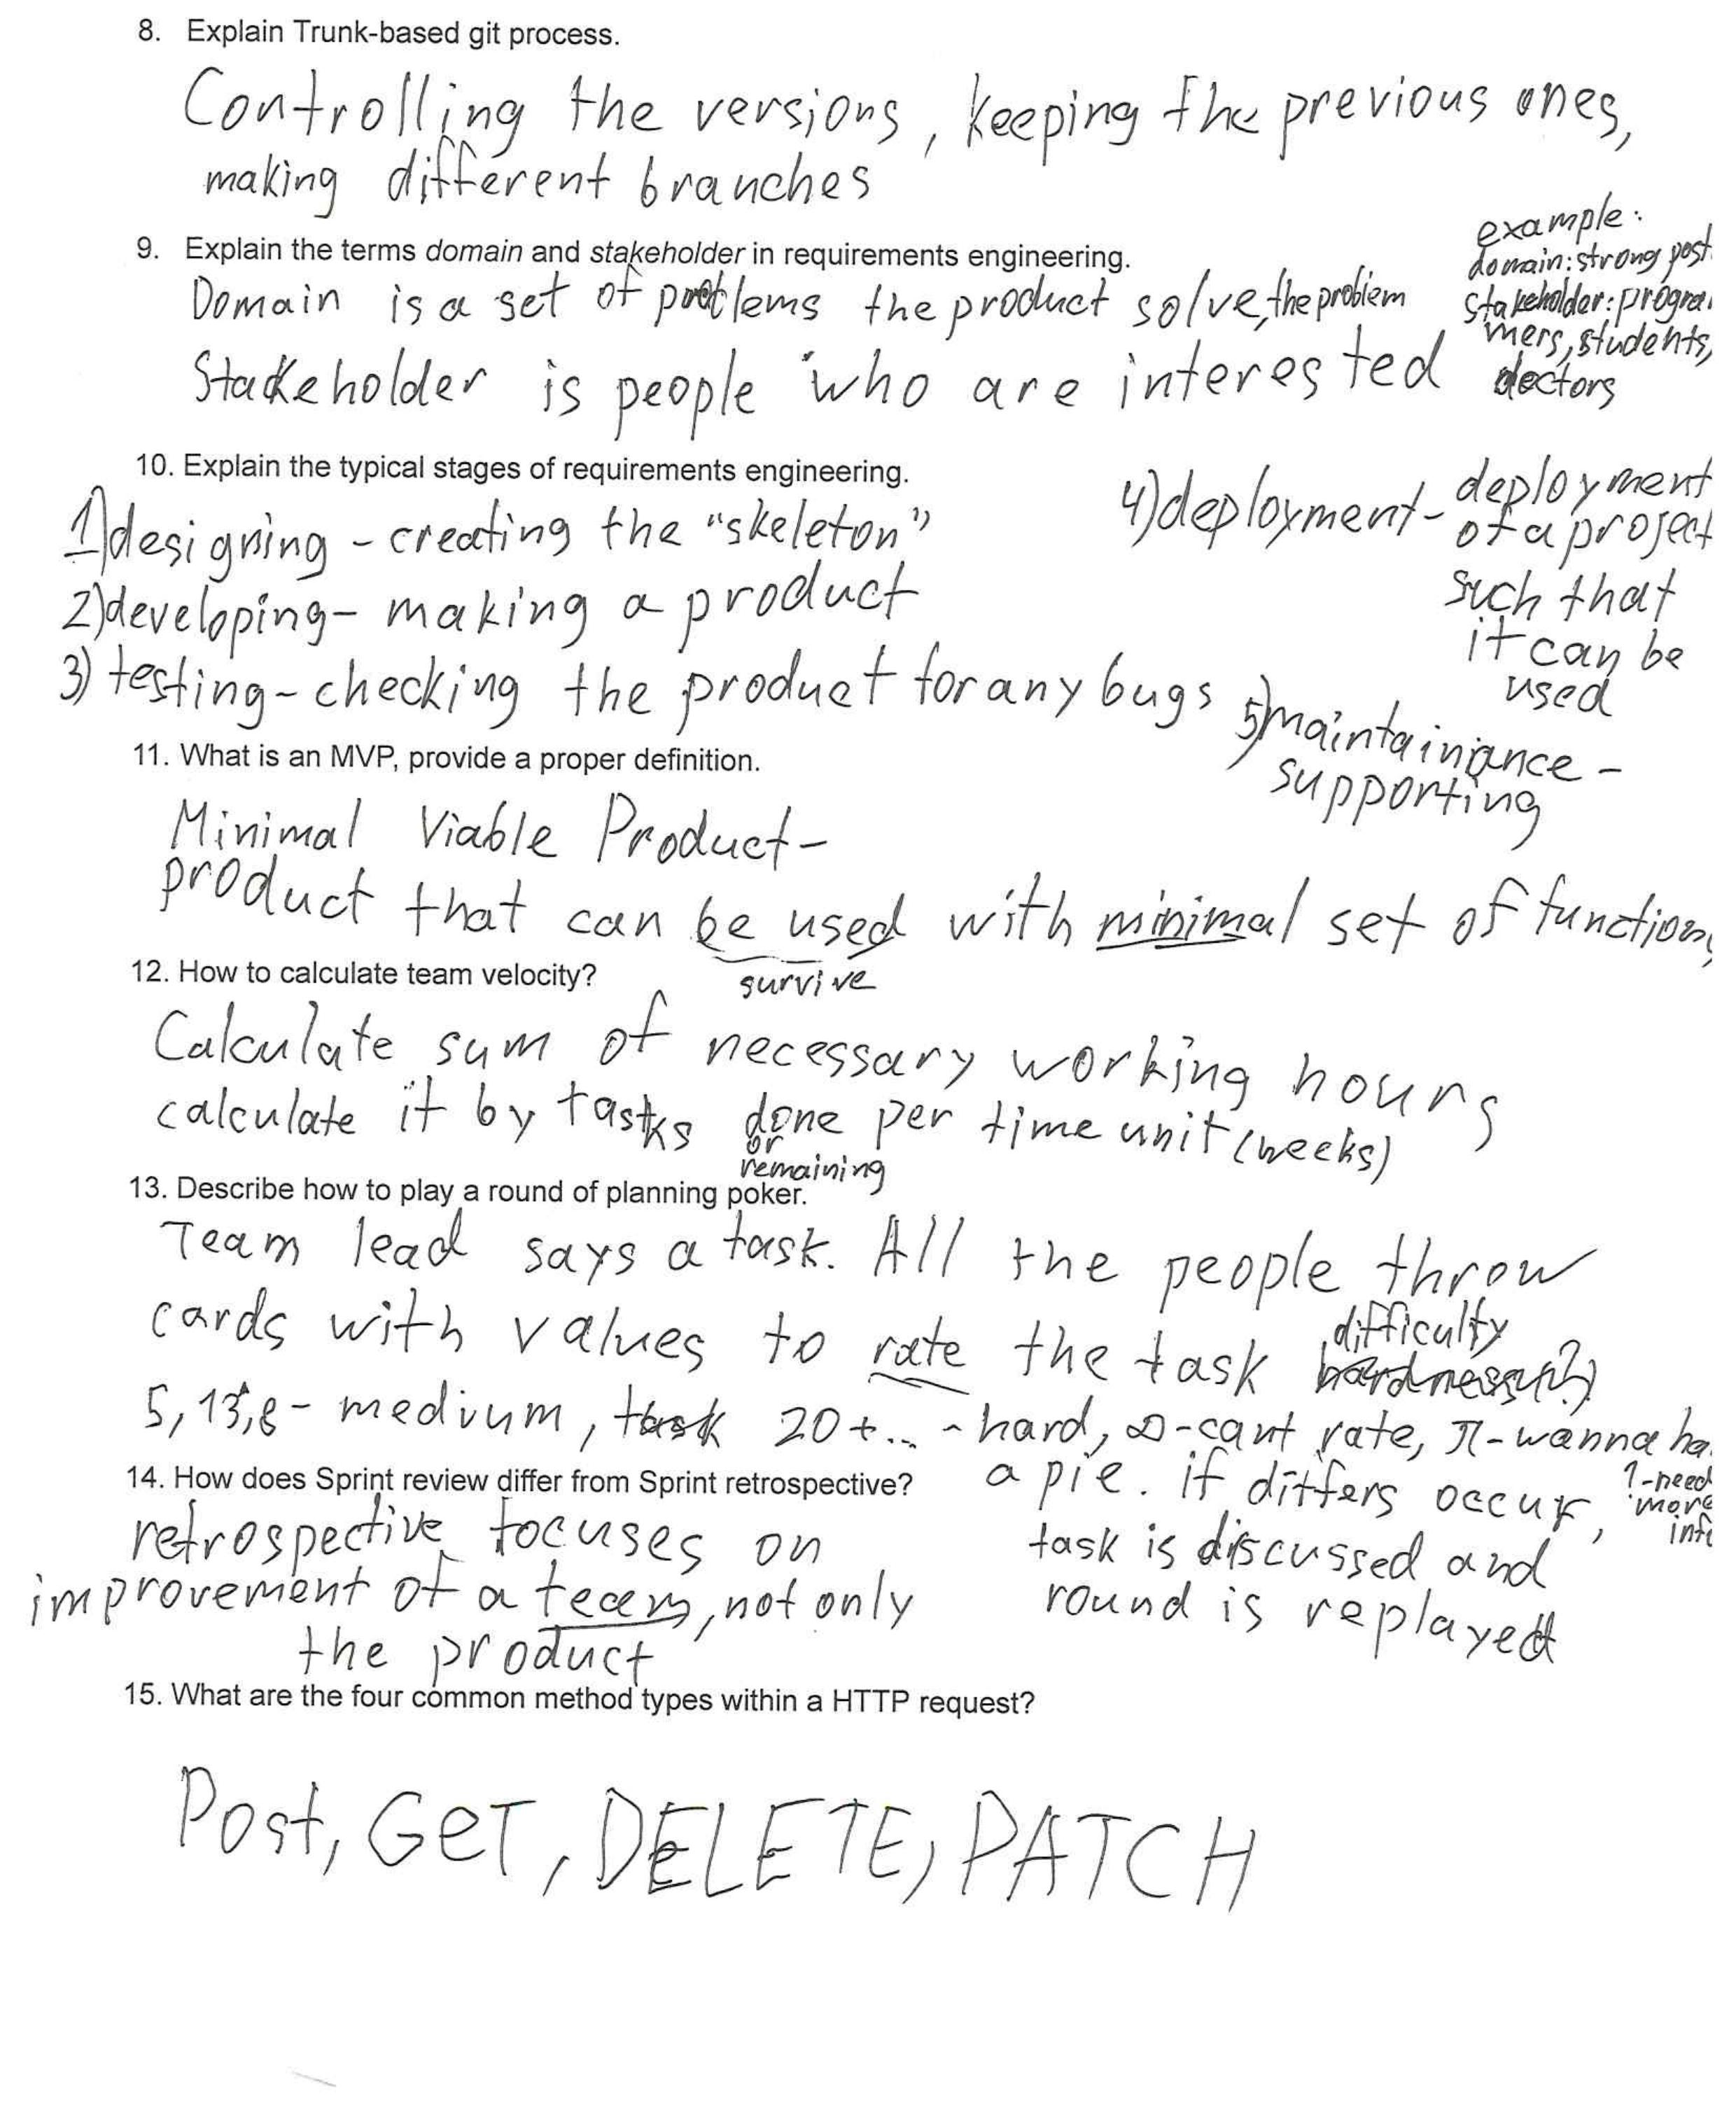 8. Explain Trunk-based git process.
Controlling the versions, keeping the previous ones,
making different branches
9. Explain the terms domain and stakeholder in requirements engineering.
Domain is a set of problems the product solve, the problem
Stakeholder is people who are interested
example:
domain: strong post
stakeholder: progra
mers, students,
doctors
10. Explain the typical stages of requirements engineering.
1) designing - creating the "skeleton"
2) developing - making a product
3) testing - checking the product for any bugs
4) deployment - deployment
of a project
such that
it can be
used
5) maintainiance -
supporting
11. What is an MVP, provide a proper definition.
Minimal Viable Product -
product that can be used with minimal set of functions
survive
12. How to calculate team velocity?
Calculate sum of necessary working hours
calculate it by tasks done per time unit (weeks)
or
remaining
13. Describe how to play a round of planning poker.
Team lead says a task. All the people throw
cards with values to rate the task difficulty
5, 13, 8 - medium, task 20+... - hard, ∞ - cant rate, π - wanna ha
a pie. if differs occur,
?-need
more
inf
task is discussed and
round is replayed
14. How does Sprint review differ from Sprint retrospective?
retrospective focuses on
improvement of a team, not only
the product
15. What are the four common method types within a HTTP request?
Post, GET, DELETE, PATCH